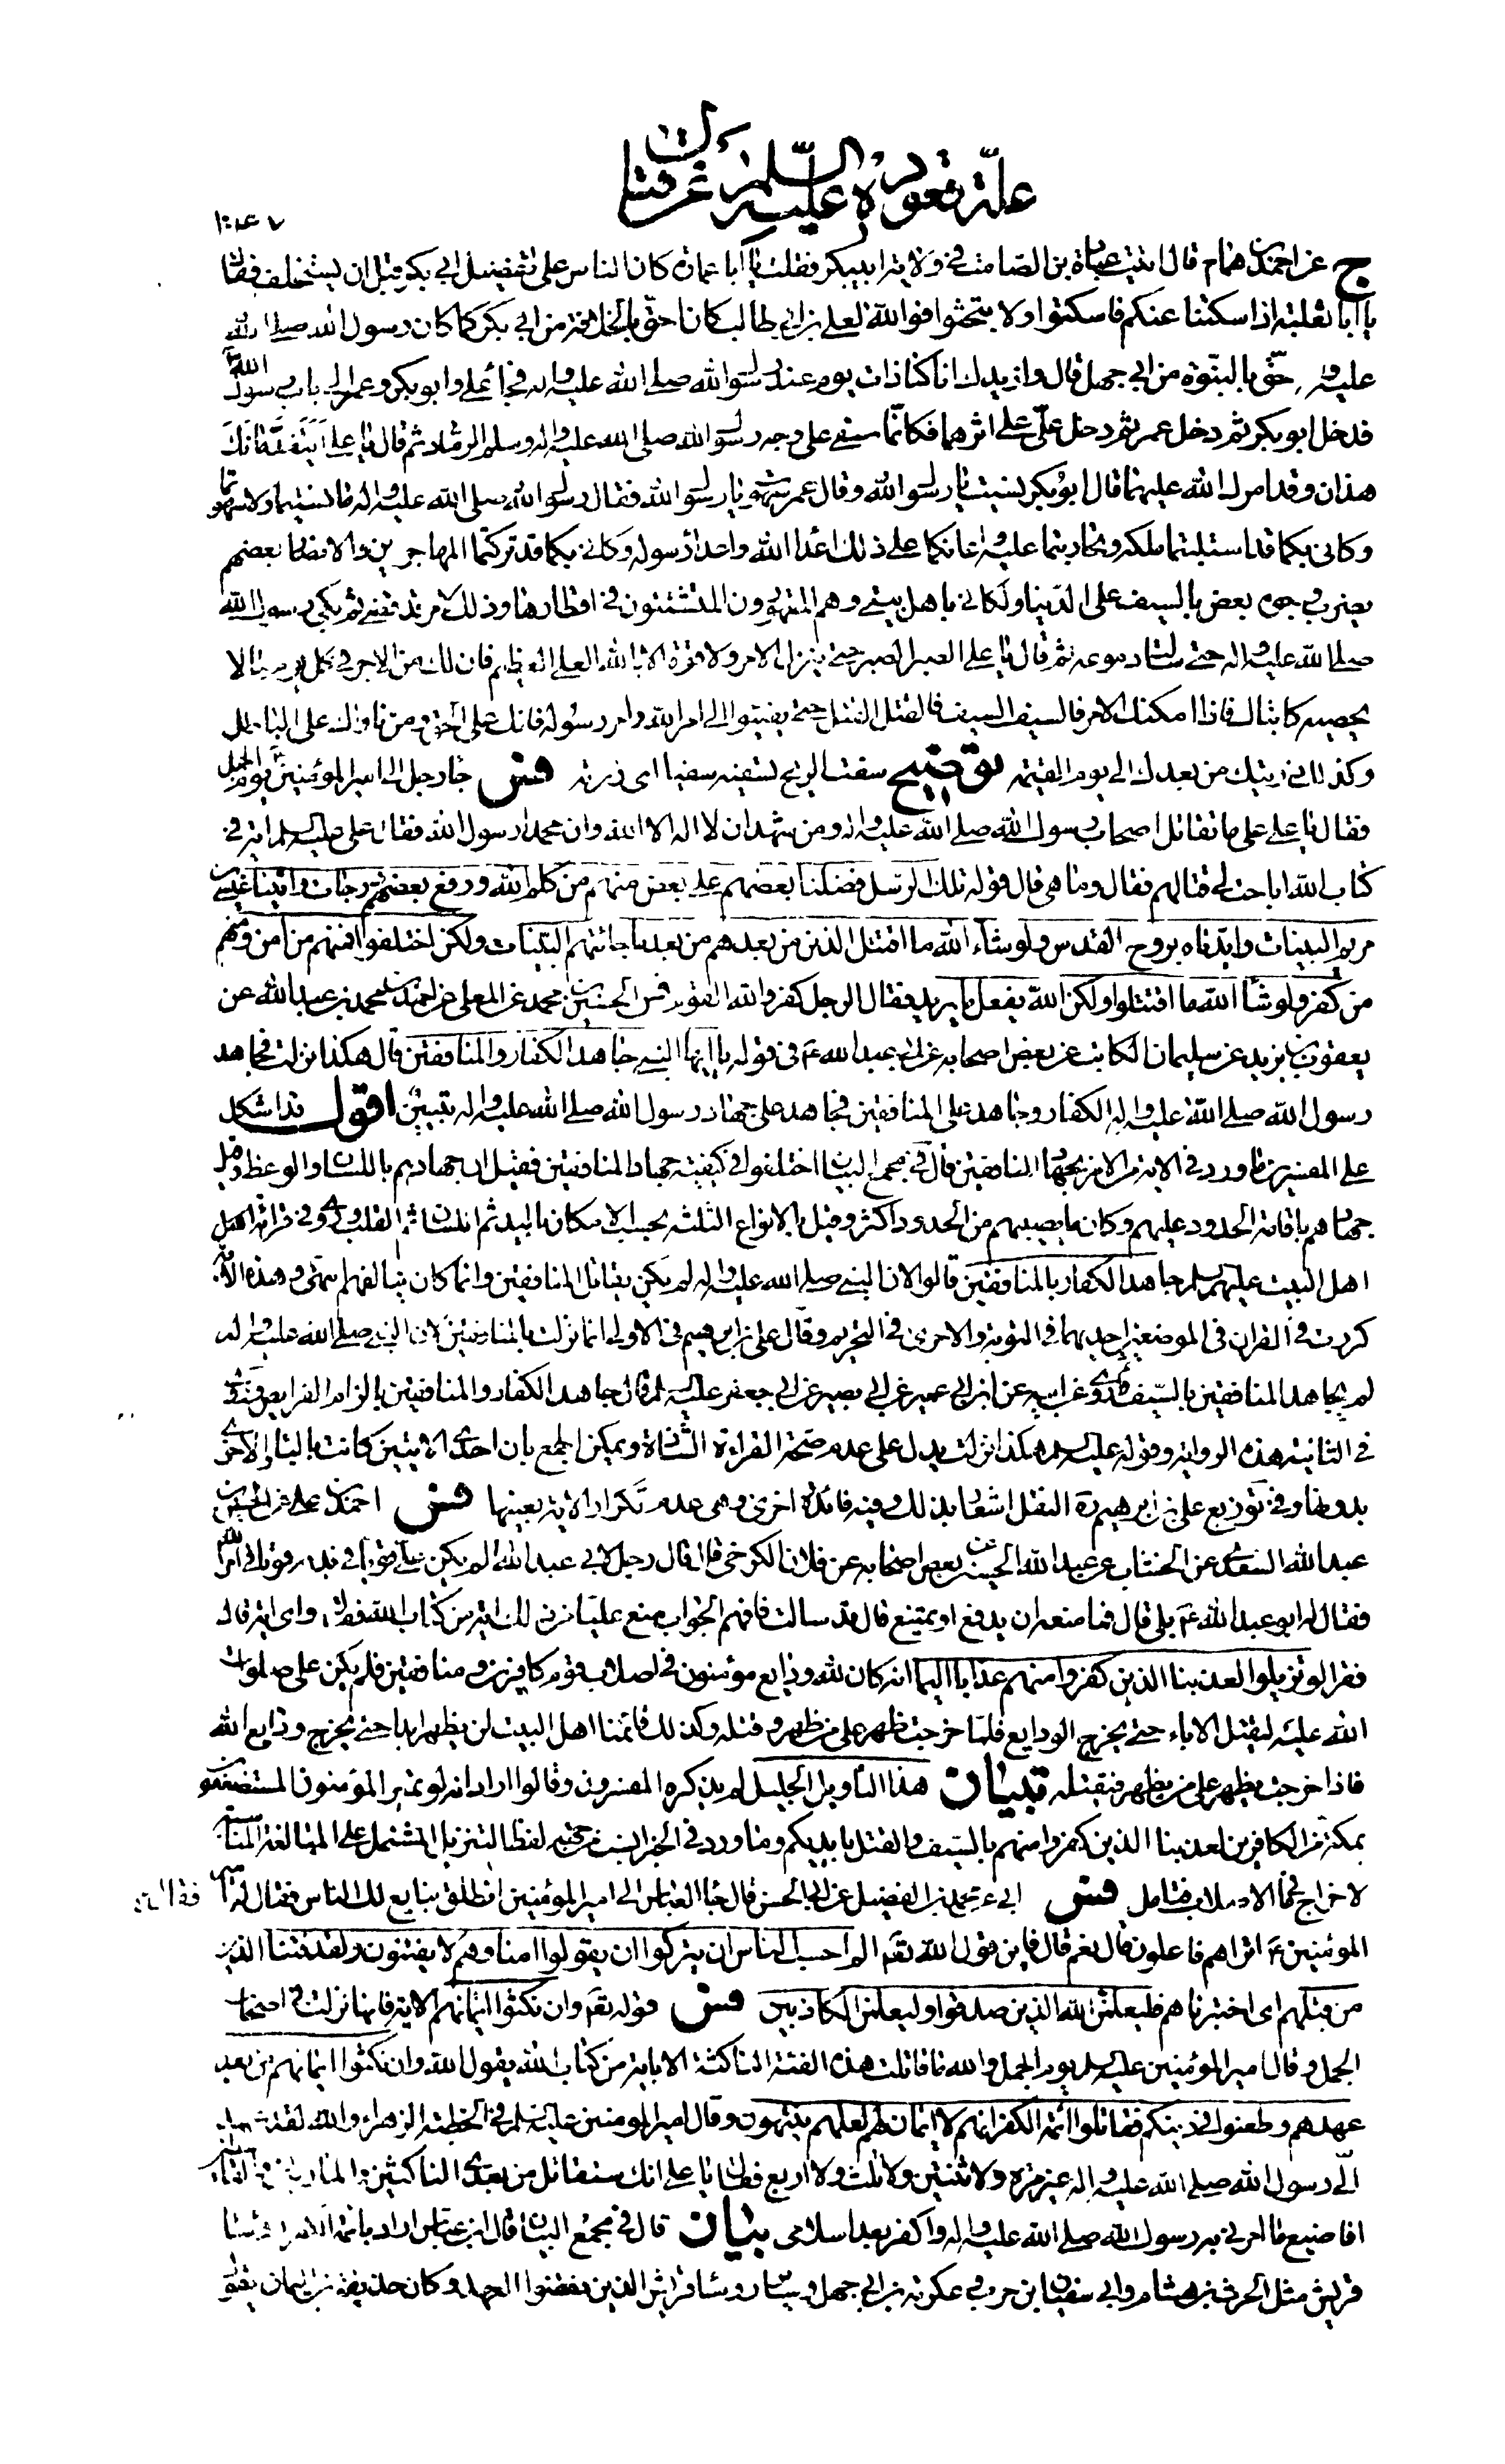 علّة قعوده عليه السلم عن قتال
ج عن احمد بن همام قال اتيت عبادة بن الصامت في ولاية ابي بكر فقلت يا ابا عمارة كان الناس على تفضيل ابي بكر قبل ان يستخلف فقال
يا ابا ثعلبة اذا سكتنا عنكم فاسكتوا ولا تبحثوا فوالله لعلي بن ابي طالب كان احق بالخلافة من ابي بكر كما كان رسول الله صلى الله
عليه واله احق بالنبوة من ابي جهل قال وازيدك انا كنا ذات يوم عند رسول الله صلى الله عليه واله فجاء علي وابو بكر وعمر الى باب رسول الله
فدخل ابو بكر ثم دخل عمر ثم دخل علي على اثرهما فكانما سفي على وجه رسول الله صلى الله عليه واله وسلم الرماد ثم قال يا علي ايتقدمانك
هذان وقد امرك الله عليهما قال ابو بكر نسيت يا رسول الله وقال عمر سهوت يا رسول الله فقال رسول الله صلى الله عليه واله ما نسيتما ولا سهوتما
وكاني بكما قد استلبتما ملكه وتحاربتما عليه واعانكما على ذلك اعداء الله واعداء رسوله وكاني بكما قد تركتما المهاجرين والانصار بعضهم
يضرب وجوه بعض بالسيف على الدنيا ولكاني باهل بيتي وهم المقهورون المتشتتون في اقطارها وذلك لامر قد قضي ثم بكى رسول الله
صلى الله عليه واله حتى سالت دموعه ثم قال يا علي الصبر الصبر حتى ينزل الامر ولا قوة الا بالله العلي العظيم فان لك من الاجر في كل يوم ما لا
يحصيه كاتباك فاذا امكنك الامر فالسيف السيف فالقتل القتل حتى يفيئوا الى امر الله وامر رسوله فانك على الحق ومن ناواك على الباطل
وكذلك ذريتك من بعدك الى يوم القيمة توضيح سفت الريح تسفيه سفيا اى ذرته فس جاء رجل الى امير المؤمنين ع يوم الجمل
فقال يا علي على ما تقاتل اصحاب رسول الله صلى الله عليه واله ومن شهد ان لا اله الا الله وان محمدا رسول الله فقال علي عليه السلم اية في
كتاب الله اباحت لي قتالهم فقال وما هي قال قوله تلك الرسل فضلنا بعضهم على بعض منهم من كلم الله ورفع بعضهم درجات واتينا عيسى بن
مريم البينات وايدناه بروح القدس ولو شاء الله ما اقتتل الذين من بعدهم من بعد ما جائتهم البينات ولكن اختلفوا فمنهم من امن ومنهم
من كفر ولو شاء الله ما اقتتلوا ولكن الله يفعل ما يريد فقال الرجل كفر والله القوم فس الحسين بن محمد عن المعلى عن احمد بن محمد بن عبد الله عن
يعقوب بن يزيد عن سليمان الكاتب عن بعض اصحابه عن ابي عبد الله ع في قوله يا ايها النبي جاهد الكفار والمنافقين قال هكذا نزلت فجاهد
رسول الله صلى الله عليه واله الكفار وجاهد علي المنافقين فجاهد علي جهاد رسول الله صلى الله عليه واله تبيين اقول قد اشكل
على المفسرين ما ورد في الاية من الامر بجهاد المنافقين قال في مجمع البيان اختلفوا في كيفية جهاد المنافقين فقيل ان جهادهم باللسان والوعظ وقيل
جهادهم باقامة الحدود عليهم وكان ما يصيبهم من الحدود اكثر وقيل بالانواع الثلثة بحسب الامكان باليد ثم اللسان ثم القلب وروي في قرائة اهل
اهل البيت عليهم السلم جاهد الكفار بالمنافقين قالوا لان النبي صلى الله عليه واله لم يكن يقاتل المنافقين وانما كان يتالفهم انتهى وهذه الاية
كررت في القران في الموضعين احديهما في التوبة والاخرى في التحريم وقال علي بن ابرهيم في الاولى انما نزلت بالمنافقين لان النبي صلى الله عليه واله
لم يجاهد المنافقين بالسيف ثم روى عن ابيه عن ابن ابي عمير عن ابي بصير عن ابي جعفر عليه السلم قال جاهد الكفار والمنافقين بالزام الفرايض وروى
في الثانية هذه الرواية وقوله عليه السلم هكذا نزلت يدل على عدم صحة القراءة الشاذة ويمكن الجمع بان احدى الايتين كانت بالباء والاخرى
بدونها وفي توزيع علي بن ابرهيم ره النقل اشعار بذلك وفيه فائدة اخرى وهي عدم تكرار الاية بعينها فس احمد بن علي عن الحسين بن
عبد الله السعدي عن الخشاب عن عبد الله بن الحسين عن بعض اصحابه عن فلان الكرخي قال قال رجل لابي عبد الله الم يكن علي قويا في بدنه قويا في امر الله
فقال له ابو عبد الله ع بلى قال فما منعه ان يدفع او يمتنع قال قد سالت فافهم الجواب منع عليا من ذلك اية من كتاب الله فقال واى اية قال
فقرا لو تزيلوا لعذبنا الذين كفروا منهم عذابا اليما انه كان لله ودايع مؤمنون في اصلاب قوم كافرين ومنافقين فلم يكن علي صلوات
الله عليه ليقتل الاباء حتى يخرج الودايع فلما خرجت ظهر على من ظهر وقتله وكذلك قائمنا اهل البيت لن يظهر ابدا حتى يخرج ودايع الله
فاذا خرجت يظهر على من يظهر فيقتله تبيان هذا التاويل الجليل لم يذكره المفسرون وقالوا اراد انه لو تميز المؤمنون المستضعفون
بمكة من الكافرين لعذبنا الذين كفروا منهم بالسيف والقتل بايديكم وما ورد في الخبر انسب من جهة لفظ التنزيل المشتمل على المبالغة المناسبة
لاخراج ما في الاصلاب فتامل فس ابي ع محمد بن الفضيل عن ابي الحسن قال جاء العباس الى امير المؤمنين انطلق بنا يبايع لك الناس فقال له امير
المؤمنين ع اتراهم فاعلون قال نعم قال فاين قول الله تعم الم احسب الناس ان يتركوا ان يقولوا امنا وهم لا يفتنون ولقد فتنا الذين
من قبلهم اى اختبرناهم فليعلمن الله الذين صدقوا وليعلمن الكاذبين فس قوله تعم وان نكثوا ايمانهم الاية فانها نزلت في اصحاب
الجمل وقال امير المؤمنين عليه السلم يوم الجمل والله ما قاتلت هذه الفئة الناكثة الا باية من كتاب الله يقول الله وان نكثوا ايمانهم من بعد
عهدهم وطعنوا في دينكم فقاتلوا ائمة الكفر انهم لا ايمان لهم لعلهم ينتهون وقال امير المؤمنين عليه السلم في الخطبة الزهراء والله لقد عهد
الى رسول الله صلى الله عليه واله غير مرة ولا ثنتين ولا ثلث ولا اربع فقال يا علي انك ستقاتل من بعدي الناكثين والمارقين والقاسطين
افاضيع ما امرني به رسول الله صلى الله عليه واله واكفر بعد اسلامي بيان قال في مجمع البيان قال ابن عباس اراد بائمة الكفر رؤساء
قريش مثل الحرث بن هشام وابي سفيان بن حرب وعكرمة بن ابي جهل وساير رؤساء قريش الذين نقضوا العهد وكان حذيفة بن اليمان يقول